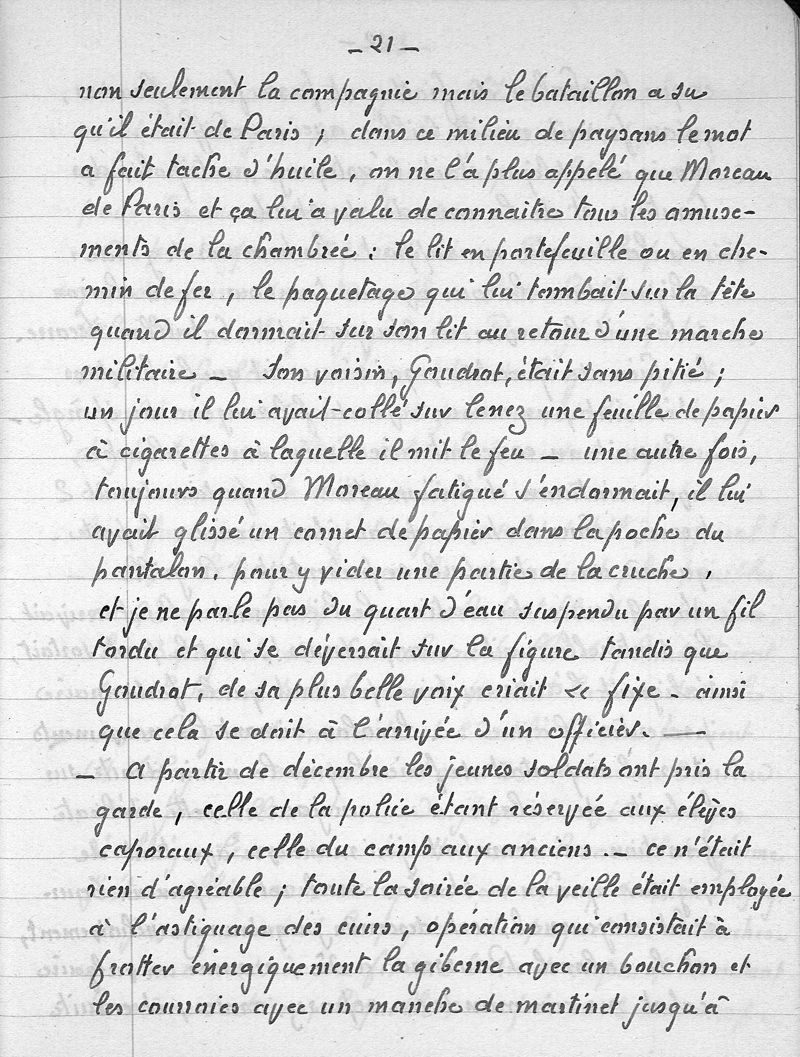 - 21 -
non seulement la compagnie mais le bataillon a su
qu'il était de Paris ; dans ce milieu de paysans le mot
a fait tache d'huile, on ne l'a plus appelé que Moreau
de Paris et ça lui a valu de connaître tous les amuse-
ments de la chambrée : le lit en portefeuille ou en che-
min de fer, le paquetage qui lui tombait sur la tête
quand il dormait sur son lit au retour d'une marche
militaire - son voisin, Gaudrot, était sans pitié ;
un jour il lui avait collé sur le nez une feuille de papier
à cigarettes à laquelle il mit le feu - une autre fois,
toujours quand Moreau fatigué s'endormait, il lui
avait glissé un cornet de papier dans la poche du
pantalon, pour y vider une partie de la cruche,
et je ne parle pas du quart d'eau suspendu par un fil
tordu et qui se déversait sur la figure tandis que
Gaudrot, de sa plus belle voix criait « fixe - ainsi
que cela se doit à l'arrivée d'un officier. —
- A partir de décembre les jeunes soldats ont pris la
garde, celle de la police étant réservée aux élèves
caporaux, celle du camp aux anciens. - ce n'était
rien d'agréable ; toute la soirée de la veille était employée
à l'astiquage des cuirs, opération qui consistait à
frotter énergiquement la giberne avec un bouchon et
les courroies avec un manche de martinet jusqu'à